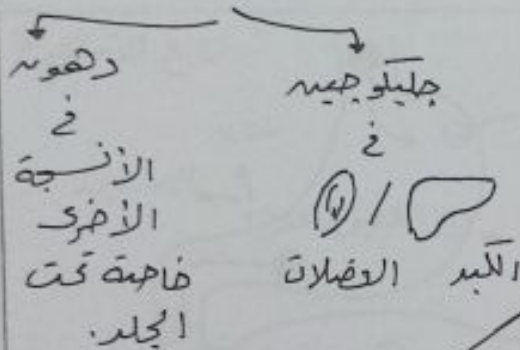 جليكوجين
في
الكبد / العضلات
دهون
في
الأنسجة
الأخرى
خاصة تحت
الجلد.